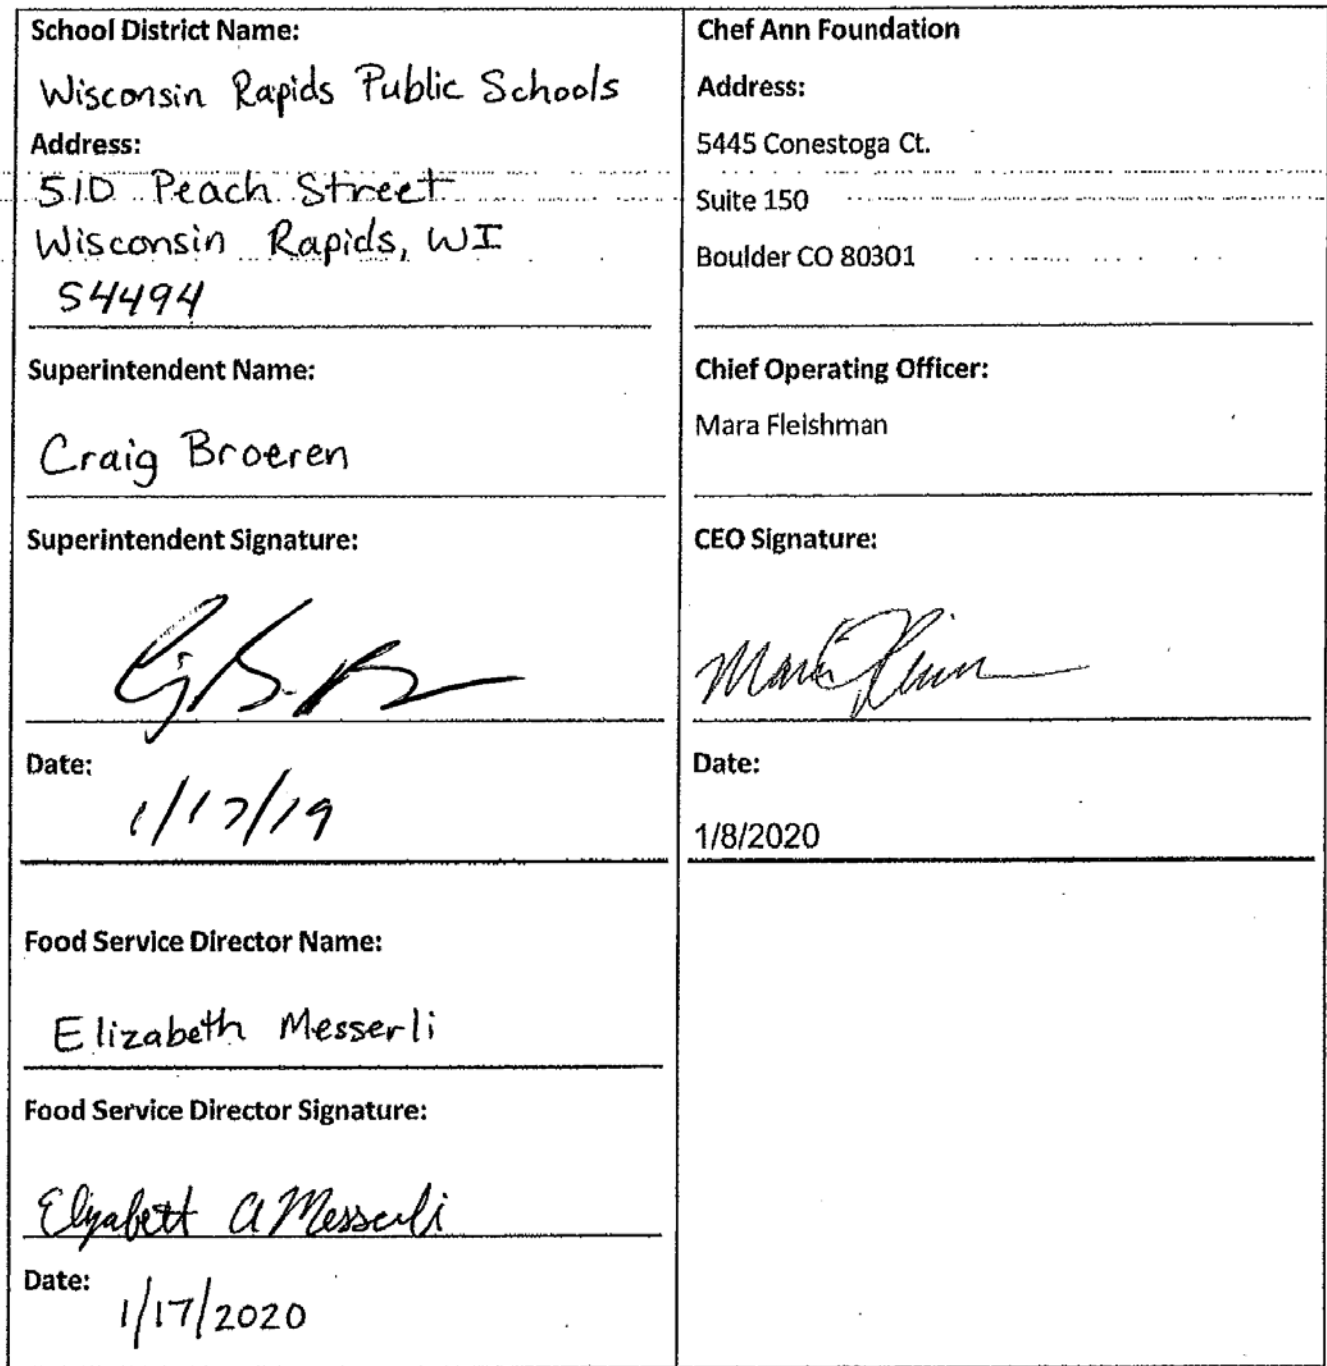 School District Name:
Wisconsin Rapids Public Schools
Address:
510 Peach Street
Wisconsin Rapids, WI
54494
Superintendent Name:
Craig Broeren
Superintendent Signature:
Date:
1/17/19
Food Service Director Name:
Elizabeth Messerli
Food Service Director Signature:
Elizabeth A Messerli
Date:
1/17/2020
Chef Ann Foundation
Address:
5445 Conestoga Ct.
Suite 150
Boulder CO 80301
Chief Operating Officer:
Mara Fleishman
CEO Signature:
Date:
1/8/2020